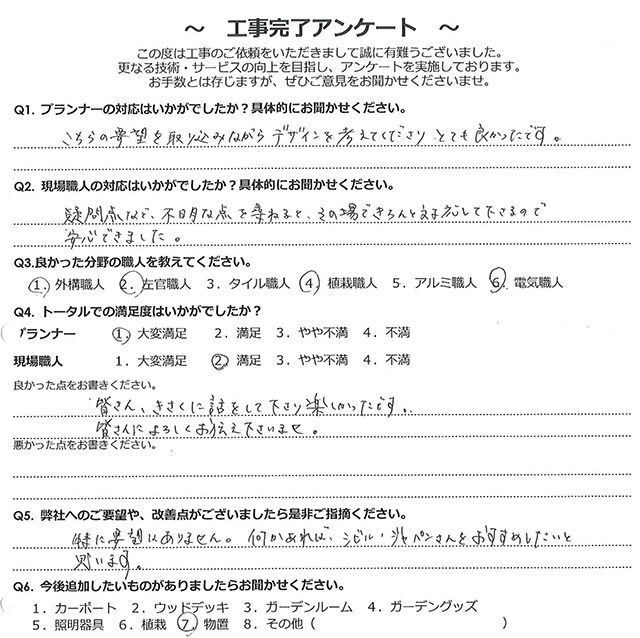 ～　工事完了アンケート　～
この度は工事のご依頼をいただきまして誠に有難うございました。
更なる技術・サービスの向上を目指し、アンケートを実施しております。
お手数とは存じますが、ぜひご意見をお聞かせくださいませ。
Q1. プランナーの対応はいかがでしたか？具体的にお聞かせください。
こちらの要望を取り込みながらデザインを考えてくださりとても良かったです。
Q2. 現場職人の対応はいかがでしたか？具体的にお聞かせください。
疑問点など、不明な点を尋ねると、その場できちんと対応して下さるので
安心できました。
Q3.良かった分野の職人を教えてください。
1. 外構職人　2. 左官職人　3. タイル職人　4. 植栽職人　5. アルミ職人　6. 電気職人
Q4. トータルでの満足度はいかがでしたか？
プランナー　1. 大変満足　2. 満足　3. やや不満　4. 不満
現場職人　1. 大変満足　2. 満足　3. やや不満　4. 不満
良かった点をお書きください。
皆さん、きさくに話をして下さり楽しかったです。
皆さんによろしくお伝え下さいませ。
悪かった点をお書きください。
Q5. 弊社へのご要望や、改善点がございましたら是非ご指摘ください。
特に要望はありません。何かあれば、シビル・ジャパンさんをおすすめしたいと
思います。
Q6. 今後追加したいものがありましたらお聞かせください。
1. カーポート　2. ウッドデッキ　3. ガーデンルーム　4. ガーデングッズ
5. 照明器具　6. 植栽　7. 物置　8. その他（　　　　　　　　　　）